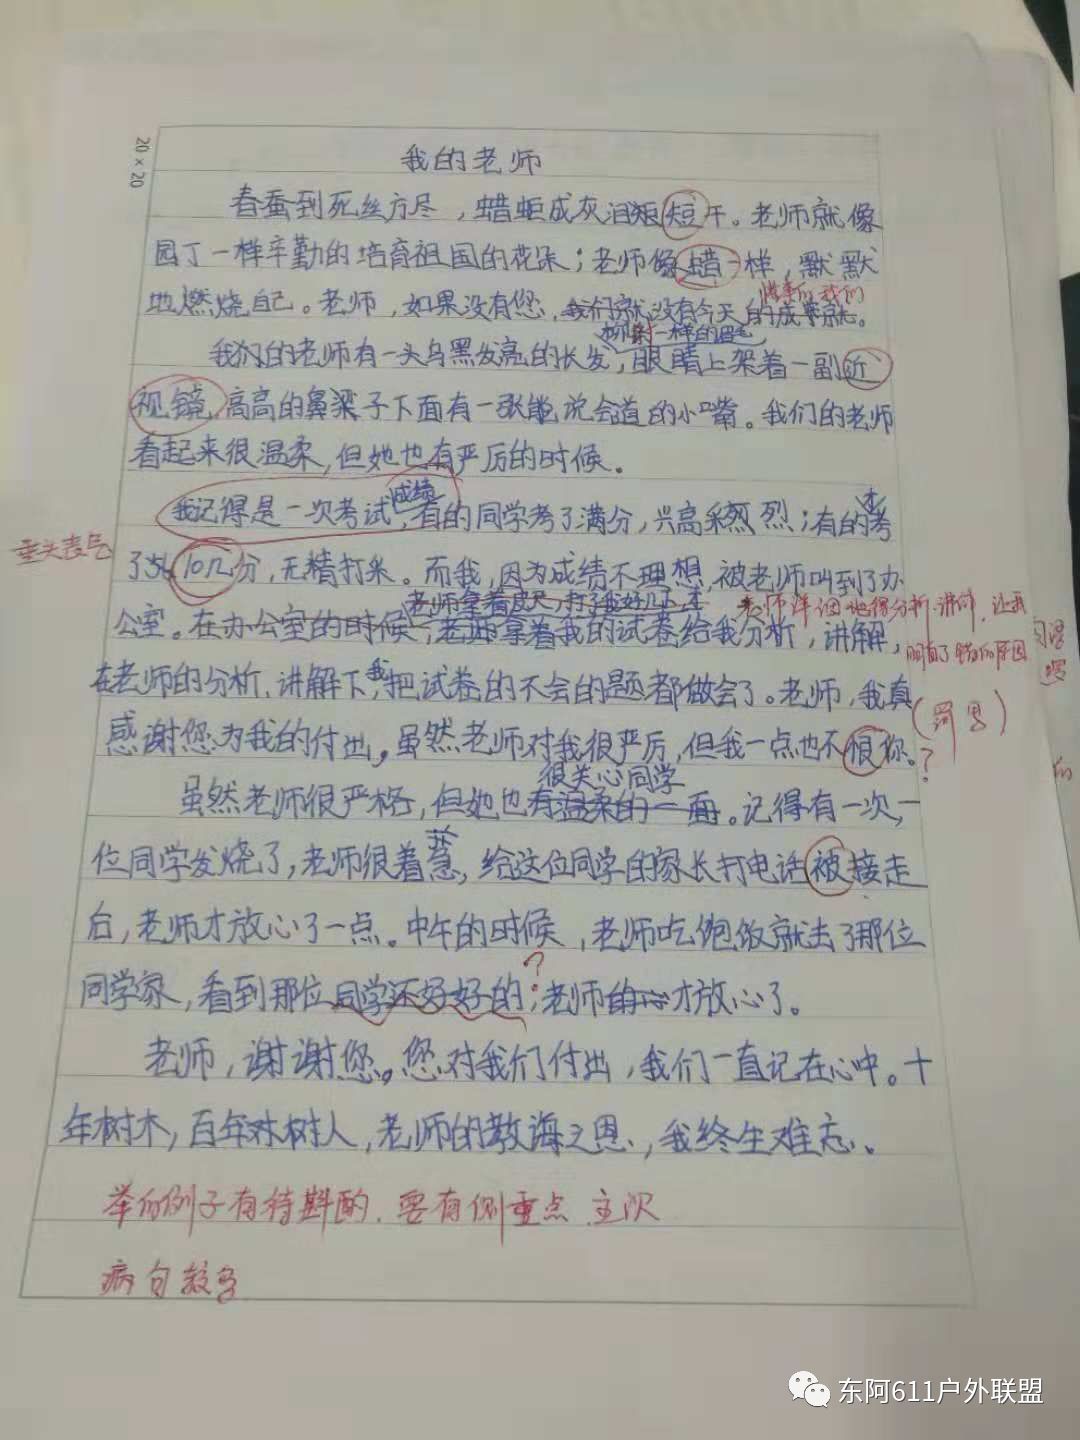 20×20
我的老师
春蚕到死丝方尽，蜡炬成灰泪短干。老师就像
园丁一样辛勤的培育祖国的花朵；老师像蜡一样，默默
地燃烧自己。老师，如果没有您，我们就没有今天的成就。
我们
柳树一样的眉毛
我们的老师有一头乌黑发亮的长发，眼睛上架着一副近
视镜，高高的鼻梁子下面有一张能说会道的小嘴。我们的老师
看起来很温柔，但她也有严厉的时候。
成绩
我记得是一次考试，有的同学考了满分，兴高采烈；有的考
垂头丧气
了九10几分，无精打采。而我，因为成绩不理想，被老师叫到了办
老师拿着皮尺，打了我好几下，才
老师详细地得分析讲解，让我
公室。在办公室的时候，老师拿着我的试卷给我分析，讲解，
明白了错的原因
在老师的分析、讲解下，我把试卷的不会的题都做会了。老师，我真
感谢您为我的付出。虽然老师对我很严厉，但我一点也不恨你。
？
很关心同学
虽然老师很严格，但她也有温柔的一面。记得有一次，一
位同学发烧了，老师很着急，给这位同学的家长打电话被接走
后，老师才放心了一点。中午的时候，老师吃饱饭就去了那位
？
同学家，看到那位同学还好好的，老师的心才放心了。
老师，谢谢您。您对我们付出，我们一直记在心中。十
年树木，百年树人，老师的教诲之恩，我终生难忘。
举的例子有待斟酌，要有侧重点，主次
病句较多
东阿611户外联盟